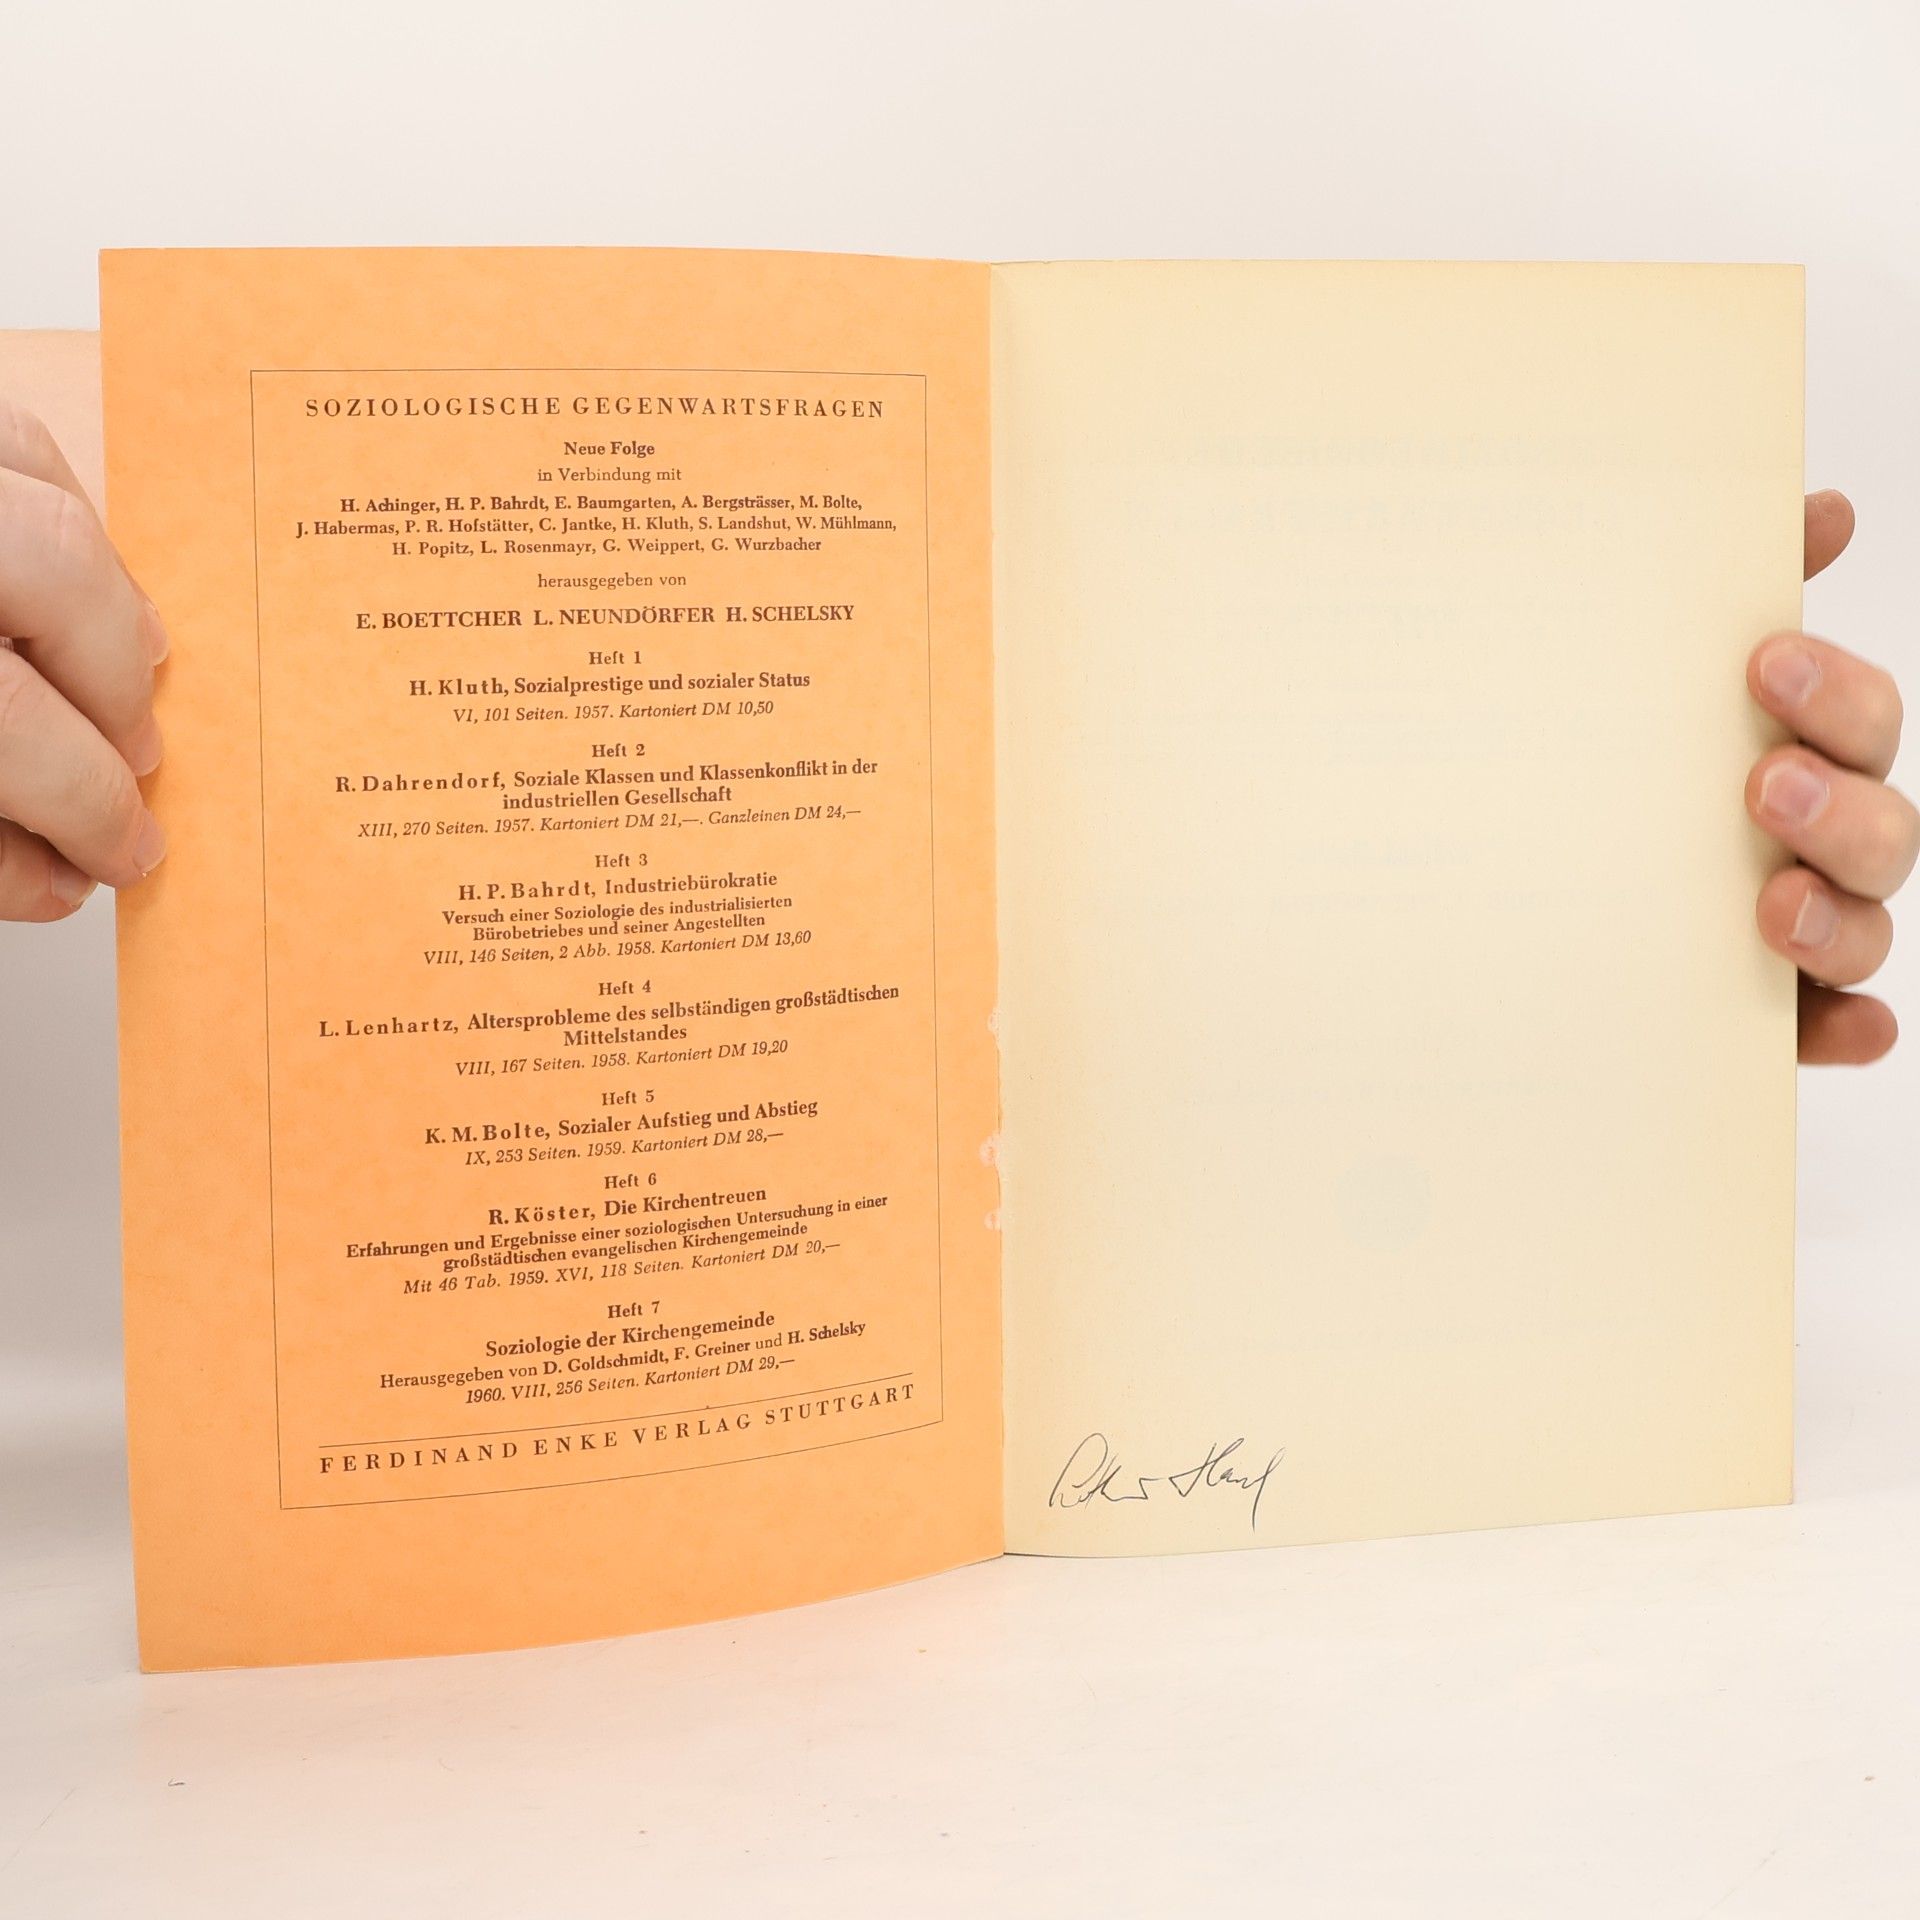 SOZIOLOGISCHE GEGENWARTSFRAGEN
Neue Folge
in Verbindung mit
H. Achinger, H. P. Bahrdt, E. Baumgarten, A. Bergsträsser, M. Bolte,
J. Habermas, P. R. Hofstätter, C. Jantke, H. Kluth, S. Landshut, W. Mühlmann,
H. Popitz, L. Rosenmayr, G. Weippert, G. Wurzbacher
herausgegeben von
E. BOETTCHER L. NEUNDÖRFER H. SCHELSKY
Heft 1
H. Kluth, Sozialprestige und sozialer Status
VI, 101 Seiten. 1957. Kartoniert DM 10,50
Heft 2
R. Dahrendorf, Soziale Klassen und Klassenkonflikt in der
industriellen Gesellschaft
XIII, 270 Seiten. 1957. Kartoniert DM 21,—. Ganzleinen DM 24,—
Heft 3
H. P. Bahrdt, Industriebürokratie
Versuch einer Soziologie des industrialisierten
Bürobetriebes und seiner Angestellten
VIII, 146 Seiten, 2 Abb. 1958. Kartoniert DM 13,60
Heft 4
L. Lenhartz, Altersprobleme des selbständigen großstädtischen
Mittelstandes
VIII, 167 Seiten. 1958. Kartoniert DM 19,20
Heft 5
K. M. Bolte, Sozialer Aufstieg und Abstieg
IX, 253 Seiten. 1959. Kartoniert DM 28,—
Heft 6
R. Köster, Die Kirchentreuen
Erfahrungen und Ergebnisse einer soziologischen Untersuchung in einer
großstädtischen evangelischen Kirchengemeinde
Mit 46 Tab. 1959. XVI, 118 Seiten. Kartoniert DM 20,—
Heft 7
Soziologie der Kirchengemeinde
Herausgegeben von D. Goldschmidt, F. Greiner und H. Schelsky
1960. VIII, 256 Seiten. Kartoniert DM 29,—
FERDINAND ENKE VERLAG STUTTGART